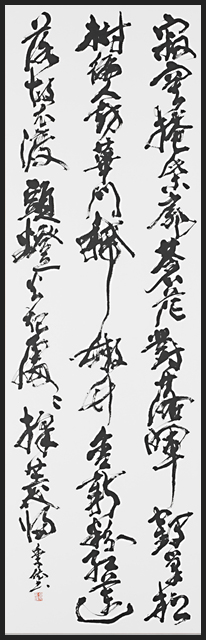 寂寞掩柴扉蒼茫對落暉鶴巢松
樹遍人訪蓽門稀嫩竹含新粉紅蓮
落故衣渡頭燈火起處々採菱歸